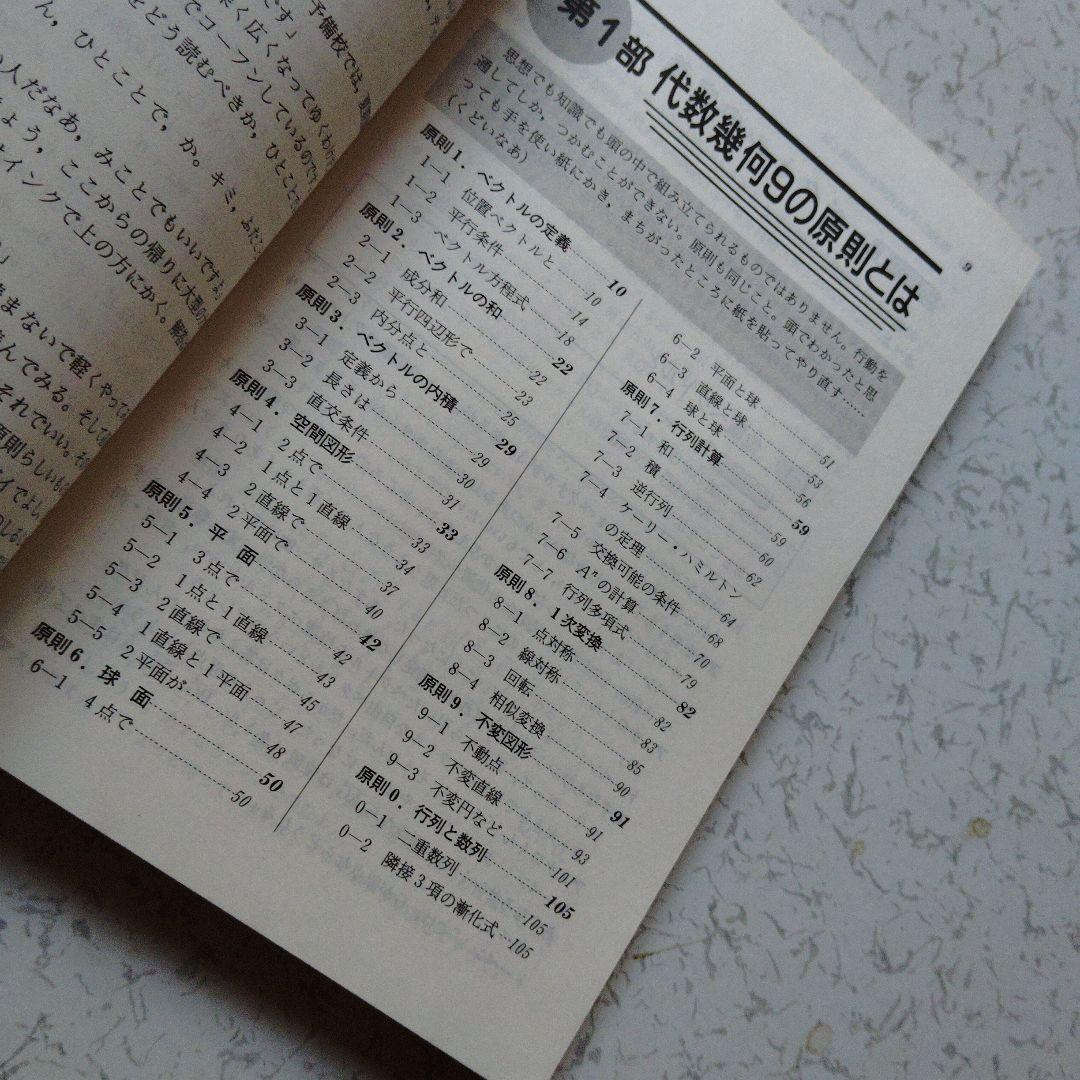 予備校では,
です」
深く広くなってゆくわけ
でコーフンしているので
をどう読むべきか, ひとこと
ん, ひとことで, か。キミ, ふたこ
人だなあ, みことでもいいです
よう, ここからの帰りに大型の
インクで上の方にかく。解
」
まないで軽くやって
んでみる。そして
それでいい。
原則らしいも
イでよし
9
第1部 代数幾何9の原則とは
思想でも知識でも頭の中で組み立てられるものではありません。行動を
通してしか, つかむことができない。原則も同じこと。頭でわかったと思
っても手を使い紙にかき, まちがったところに紙を貼ってやり直す……
(くどいなあ)
原則1. ベクトルの定義……10
1―1 位置ベクトルと……10
1―2 平行条件……14
1―3 ベクトル方程式……18
原則2. ベクトルの和……22
2―1 成分和……22
2―2 平行四辺形で……23
2―3 内分点と……25
原則3. ベクトルの内積……29
3―1 定義から……29
3―2 長さは……30
3―3 直交条件……31
原則4. 空間図形……33
4―1 2点で……33
4―2 1点と1直線……34
4―3 2直線で……37
4―4 2平面で……40
原則5. 平 面……42
5―1 3点で……42
5―2 1点と1直線……43
5―3 2直線で……45
5―4 1直線と1平面……47
5―5 2平面が……48
原則6. 球 面……50
6―1 4点で……50
6―2 平面と球……51
6―3 直線と球……53
6―4 球と球……56
原則7. 行列計算……59
7―1 和……59
7―2 積……60
7―3 逆行列……62
7―4 ケーリー・ハミルトン
の定理……64
7―5 交換可能の条件……68
7―6 Aⁿの計算……70
7―7 行列多項式……79
原則8. 1次変換……82
8―1 点対称……82
8―2 線対称……83
8―3 回転……85
8―4 相似変換……90
原則9. 不変図形……91
9―1 不動点……91
9―2 不変直線……93
9―3 不変円など……101
原則0. 行列と数列……105
0―1 二重数列……105
0―2 隣接3項の漸化式…105